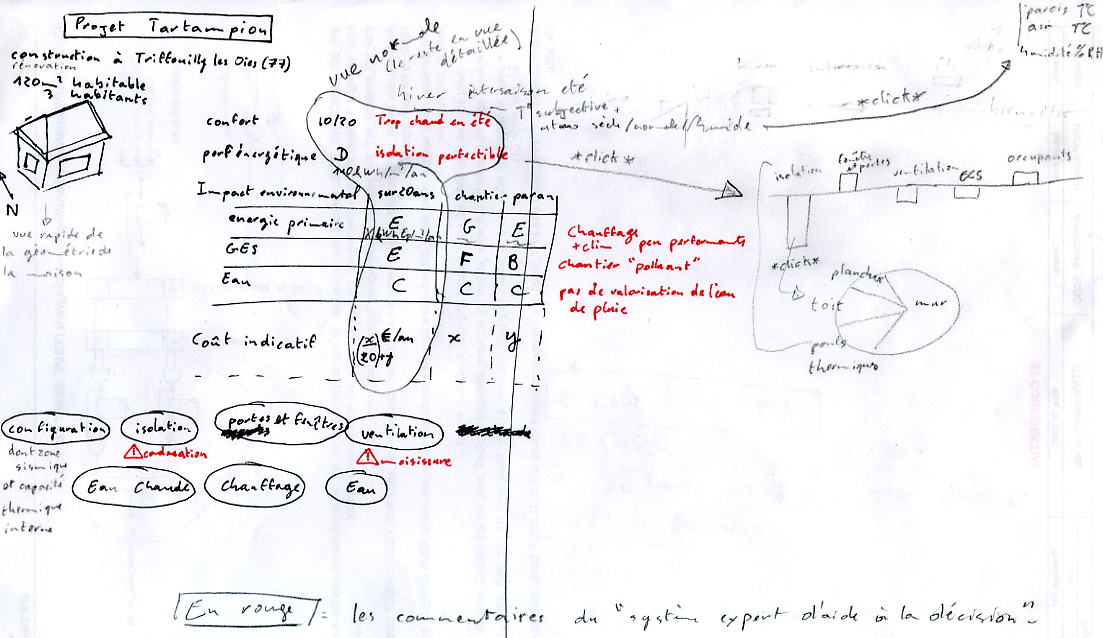 Projet Tartampion
construction à Triffouilly les Oies (77)
rénovation
120m² habitable
3 habitants
N
vue rapide de
la géométrie de
la maison
(le reste en vue
détaillée)
hiver intersaison été
confort 10/20 Trop chaud en été
T° subjective +
sèche/normale/humide
*click*
parois T°C
air T°C
humidité % RH
perf énergétique D isolation perfectible
*click*
Impact environnemental sur 20 ans chantier par an
energie primaire E G E
GES E F B
Eau C C C
Chauffage
+ clim peu performants
chantier "polluant"
pas de valorisation de l'eau
de pluie
Coût indicatif (x/20)+y €/an x y
isolation
fenêtre
portes
ventilation
ECS
occupants
*click*
plancher
toit
mur
ponts
thermiques
configuration
isolation
portes et fenêtres
ventilation
dont zone
sismique
et capacité
thermique
interne
condensation
moisissure
Eau Chaude
Chauffage
Eau
En rouge = les commentaires du "système expert d'aide à la décision"